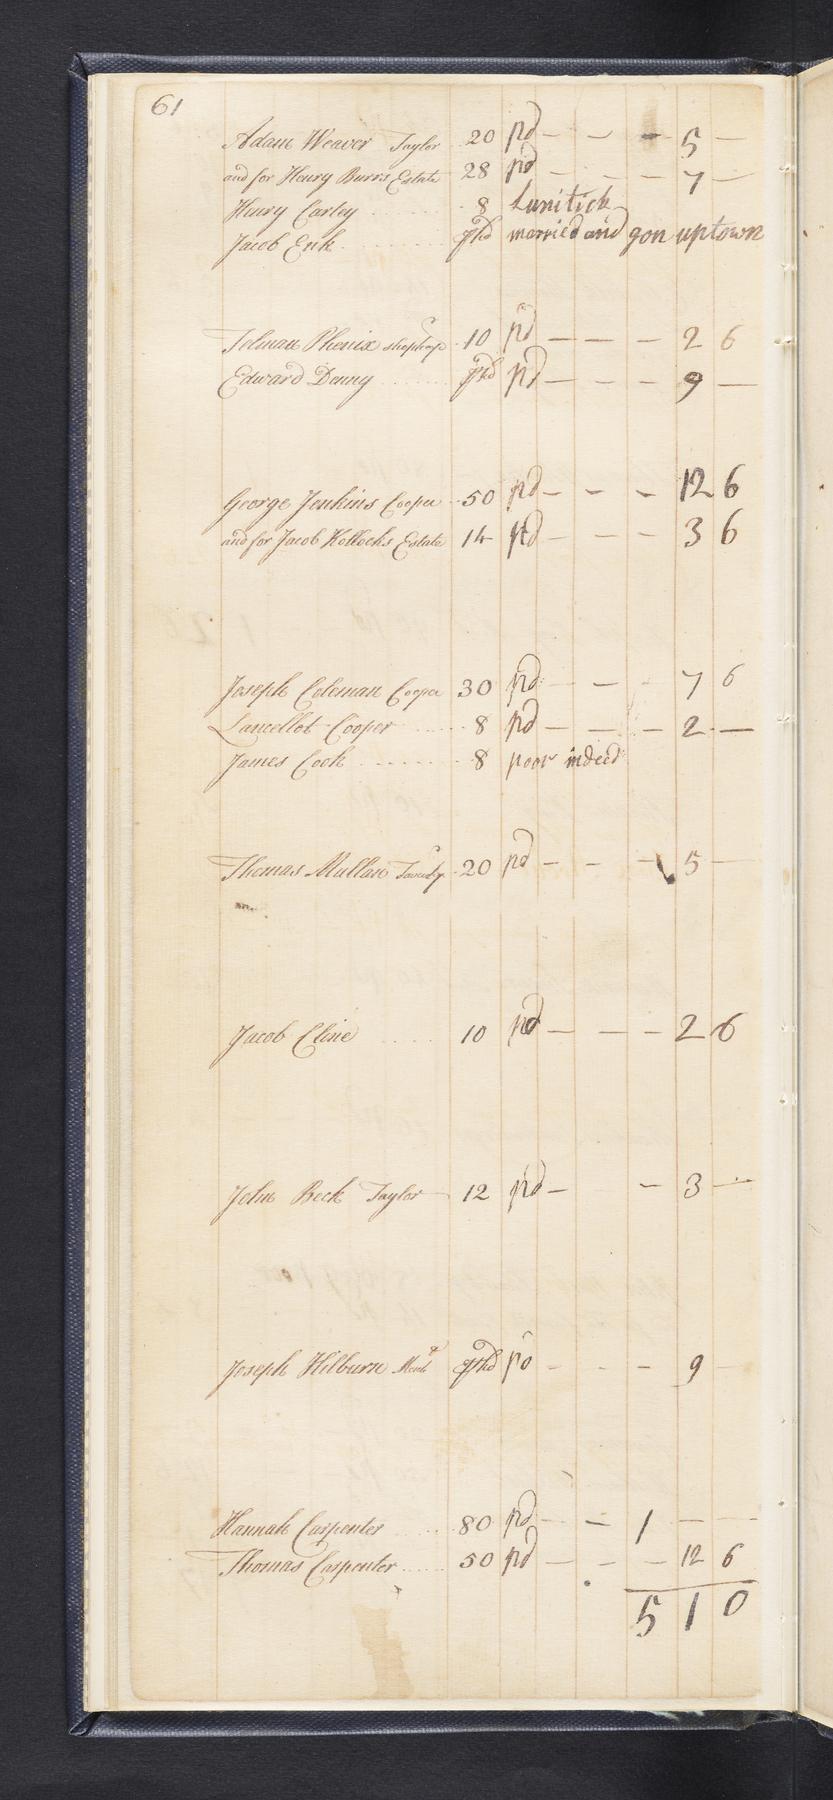 61
Adam Weaver Taylor 20 pd - - - 5 -
and for Henry Burrs Estate 28 pd - - - 7 -
Henry Carley 8 Lunitick
Jacob Enk phd married and gon uptown
Phenix shopkeepr 10 pd - - - 2 6
Edward Denny phd pd - - - 9 -
George Jenkins Cooper 50 pd - - - 12 6
and for Jacob Kollocks Estate 14 pd - - - 3 6
Joseph Coleman Cooper 30 pd - - - 7 6
Lancellot Cooper 8 pd - - - 2 -
James Cook 8 poor indeed
Thomas Mullan 20 pd - - - 5 -
Jacob Cline 10 pd - - - 2 6
John Beck Taylor 12 pd - - 3 -
Joseph Hilburn phd pd - - - 9 -
Hannah Carpenter 80 pd - - 1 - -
Thomas Carpenter 50 pd - - - 12 6
5 1 0